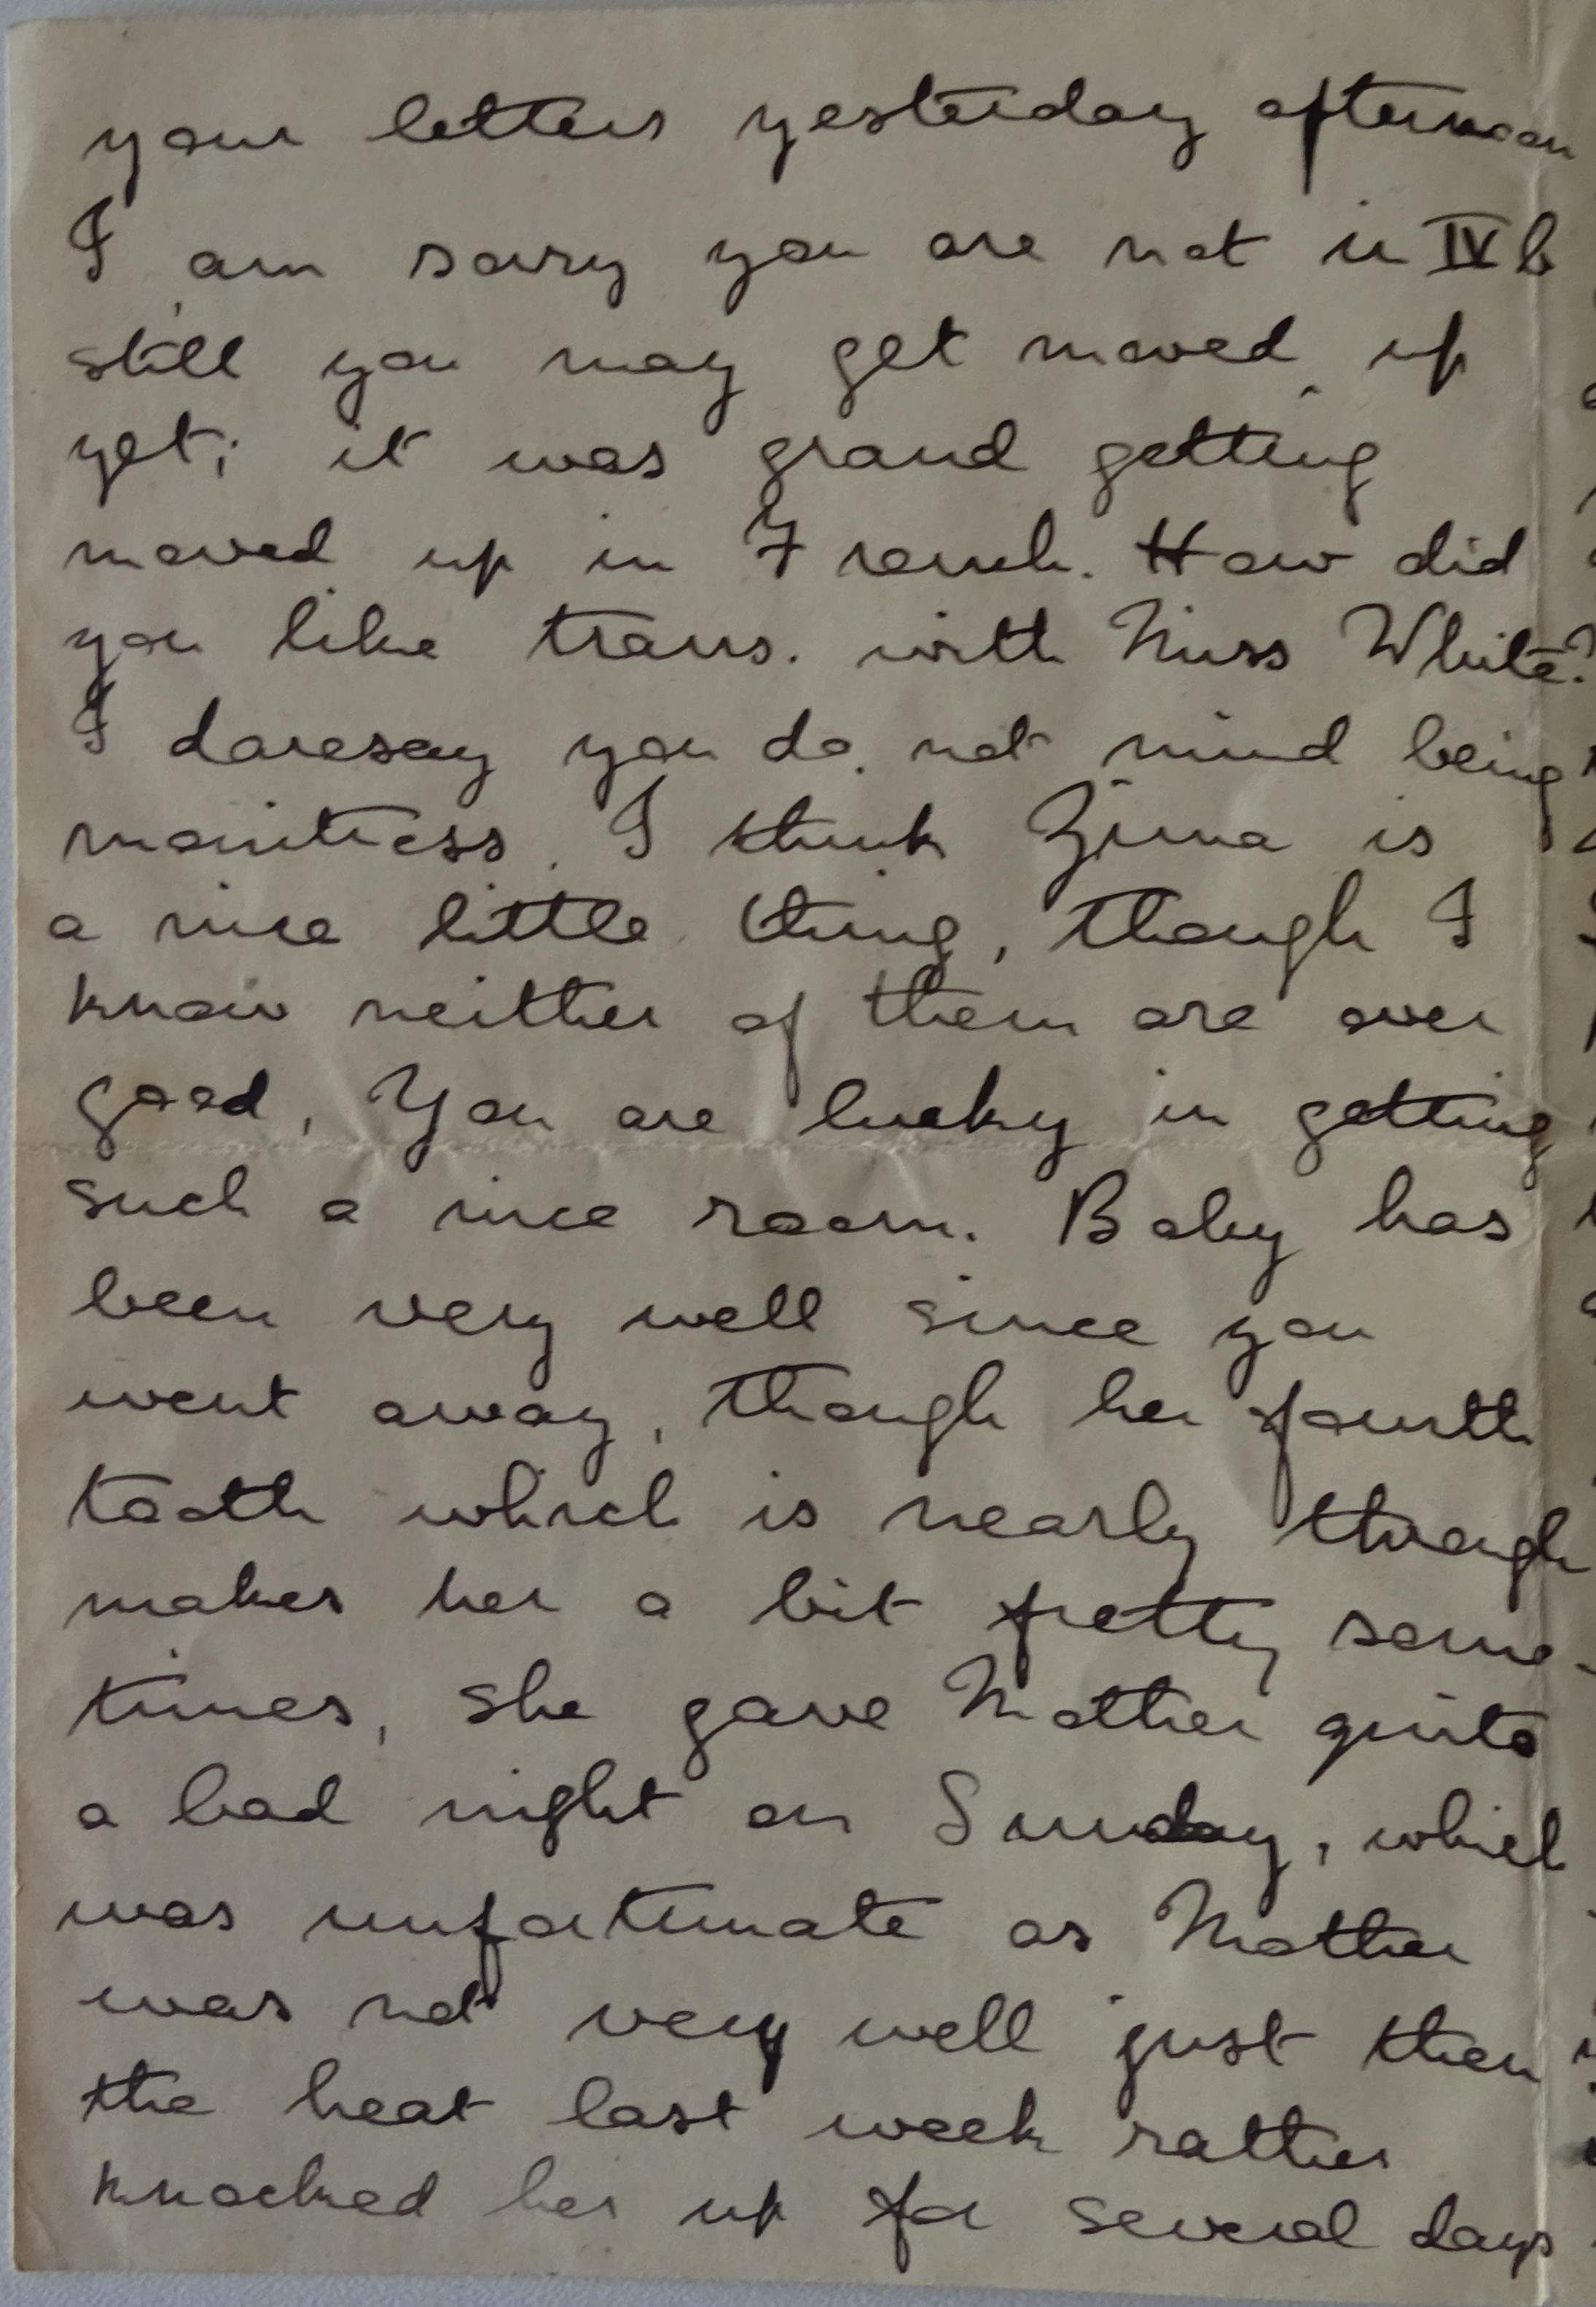 your letters yesterday afternoon
I am sorry you are not in IV b
still you may get moved up
yet; it was grand getting
moved up in French. How did
you like trans. with Miss White?
I daresay you do not mind being
monitress. I think Zima is
a nice little thing, though I
know neither of them are over
good, You are lucky in getting
such a nice room. Baby has
been very well since you
went away, though her fourth
tooth which is nearly through
makes her a bit fretty some-
times, she gave Mother quite
a bad night on Sunday, which
was unfortunate as Mother
was not very well just then
the heat last week rather
knocked her up for several days